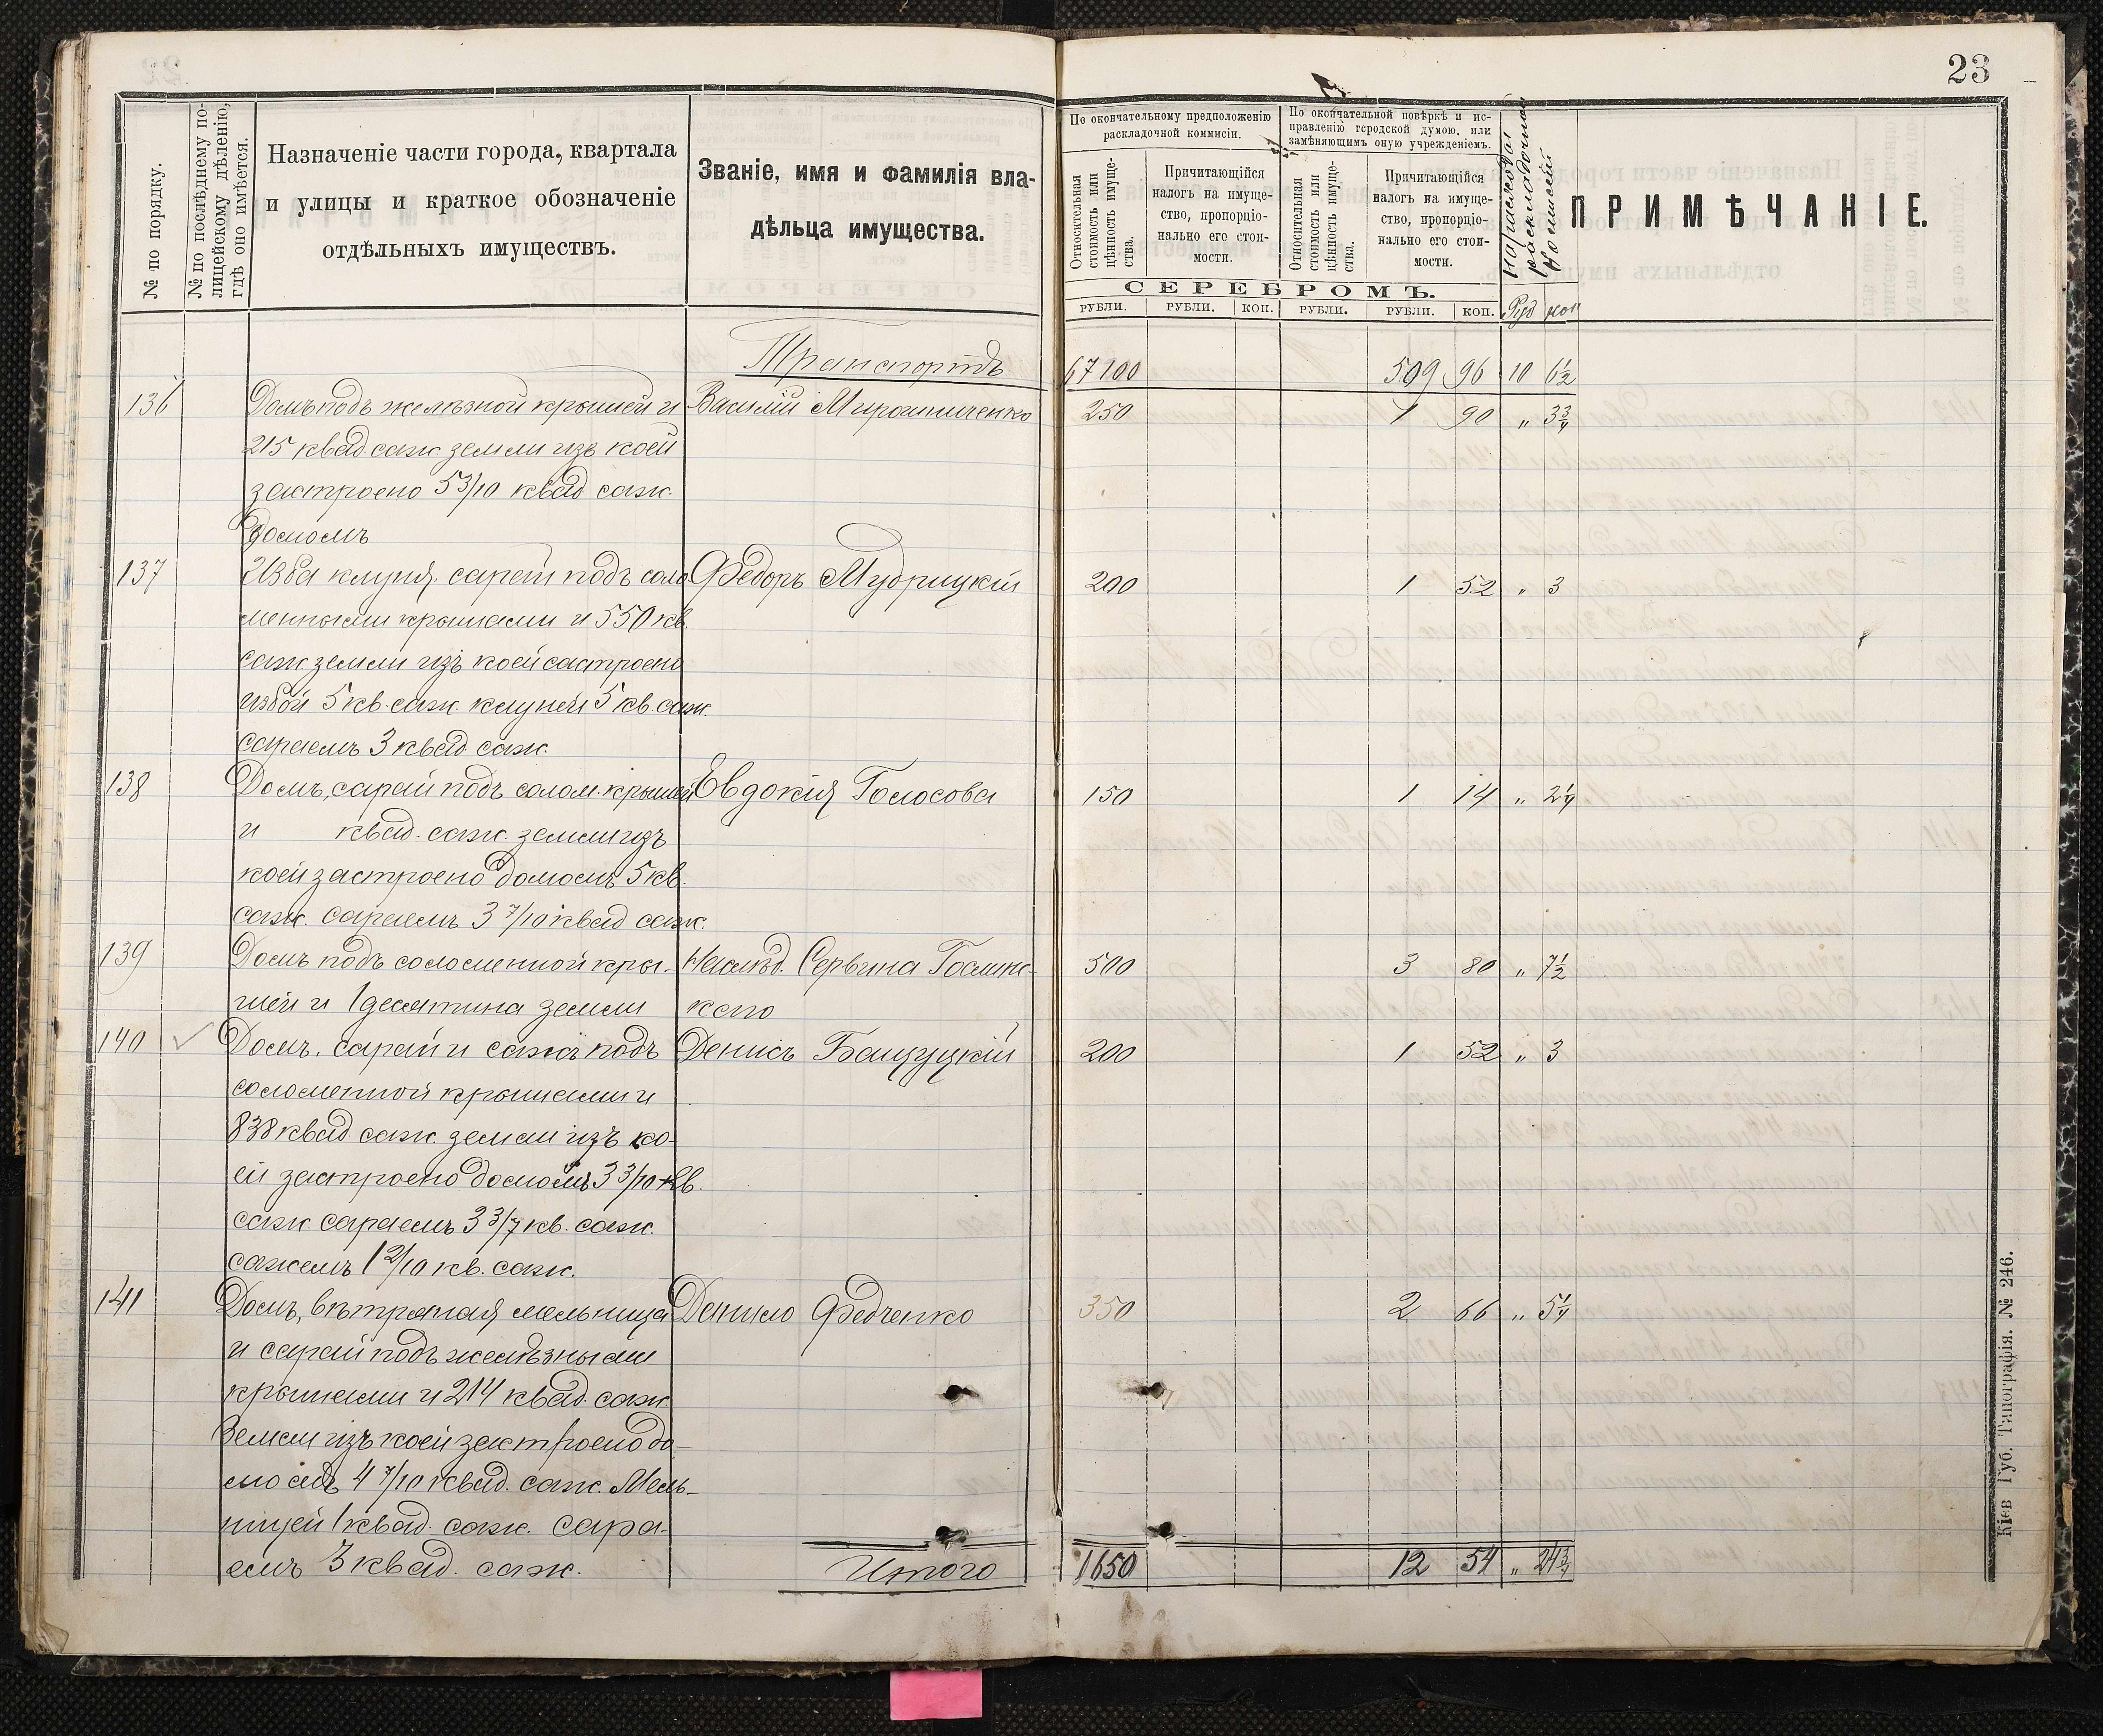 23
№ по порядку.
№ по послѣднему по-
лицейскому дѣленію,
гдѣ оно имѣется.
Назначеніе части города, квартала
и улицы и краткое обозначеніе
отдѣльныхъ имуществъ.
Званіе, имя и фамилія вла-
дѣльца имущества.
По окончательному предположенію
раскладочной коммисіи.
По окончательной повѣркѣ и ис-
правленію городской думою, или
замѣняющимъ оную учрежденіемъ.
Относительная
стоимость или
цѣнность имуще-
ства.
Причитающійся
налогъ на имуще-
ство, пропорціо-
нально его стои-
мости.
Относительная
стоимость или
цѣнность имуще-
ства.
Причитающійся
налогъ на имуще-
ство, пропорціо-
нально его стои-
мости.
на расходы
раскладочной
Комисіи
ПРИМѢЧАНІЕ.
СЕРЕБРОМЪ.
РУБЛИ. РУБЛИ. КОП. РУБЛИ. РУБЛИ. КОП. Руб коп
Транспортъ 67100 509 96 10 6½
136 Домъ подъ желѣзной крышей и Василій Мирошниченко 250 1 90 „ 3¾
215 квад. саж. земли изъ коей
застроено 5 3/10 квад саж.
домомъ
137 Изба клуня, сарай подъ соло Федоръ Мудрицкій 200 1 52 „ 3
менными крышами и 550 кв.
саж земли изъ коей застроено
избой 5 кв. саж клуней 5 кв. саж.
сараемъ 3 квад саж.
138 Домъ, сарай подъ солом. крышей Евдокія Голосова 150 1 14 „ 2¼
и квад. саж. земли изъ
коей застроено домомъ 5 кв.
саж. сараемъ 3 7/10 квад саж.
139 Домъ подъ соломенной кры- Наслѣд. 500 3 80 „ 7½
шей и 1 десятина земли кого
140 Домъ, сарай и сажъ подъ Денисъ Бащуцкій 200 1 52 „ 3
соломенной крышами и
838 квад. саж. земли изъ ко-
ей застроено домомъ 3 3/10 кв.
саж. сараемъ 3 3/7 кв. саж.
сажемъ 1 2/10 кв. саж.
141 Домъ, вѣтряная мельница Данило Федченко 350 2 66 „ 5¼
и сарай подъ желѣзными
крышами и 214 квад. саж
Земли изъ коей застроено до-
момъ 4 7/10 квад. саж. Мель-
ницей 1 квад. саж. сара-
емъ 3 квад. саж.
Итого 1650 12 54 „ 24¾
Кіев Губ. Типографія. № 246.